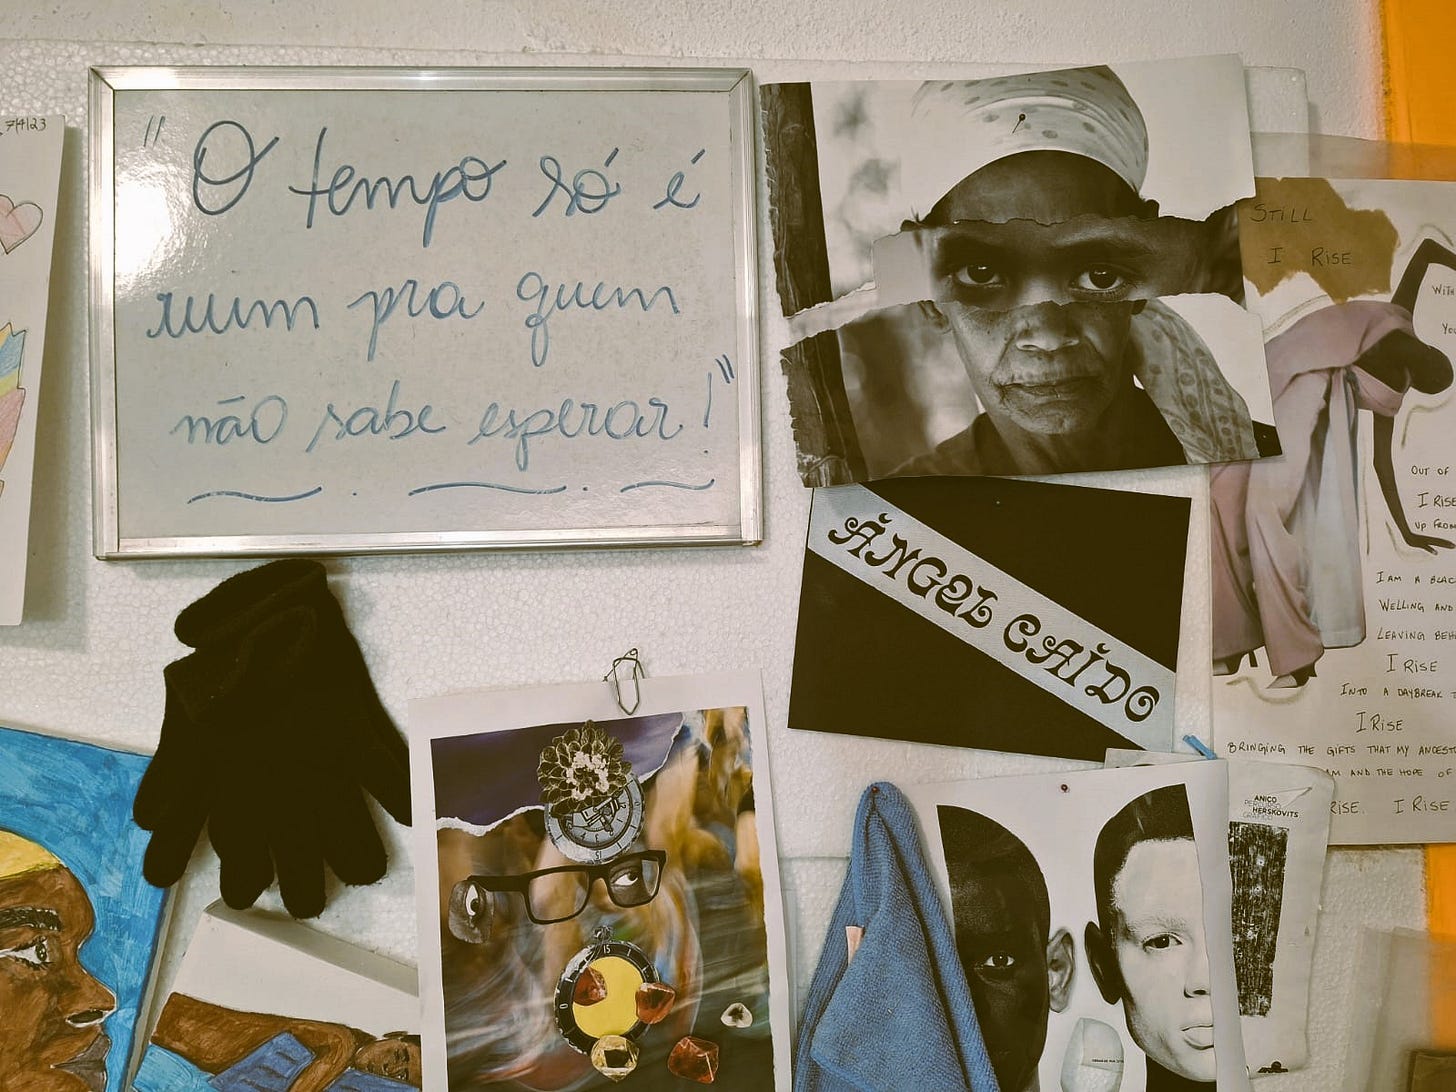 7/4/23
"O tempo só é
ruim pra quem
não sabe esperar!"
STILL
I RISE
WITH
YOU
OUT OF
I RISE
UP FROM
I AM A BLAC
WELLING AND
LEAVING BEH
I RISE
INTO A DAYBREAK T
I RISE
BRINGING THE GIFTS THAT MY ANCEST
AM AND THE HOPE OF
RISE. I RISE
ÂNGEL CAÍDO
ANICO
PERCURSO
HERSKOVITS
GRÁFICO
15
15
0